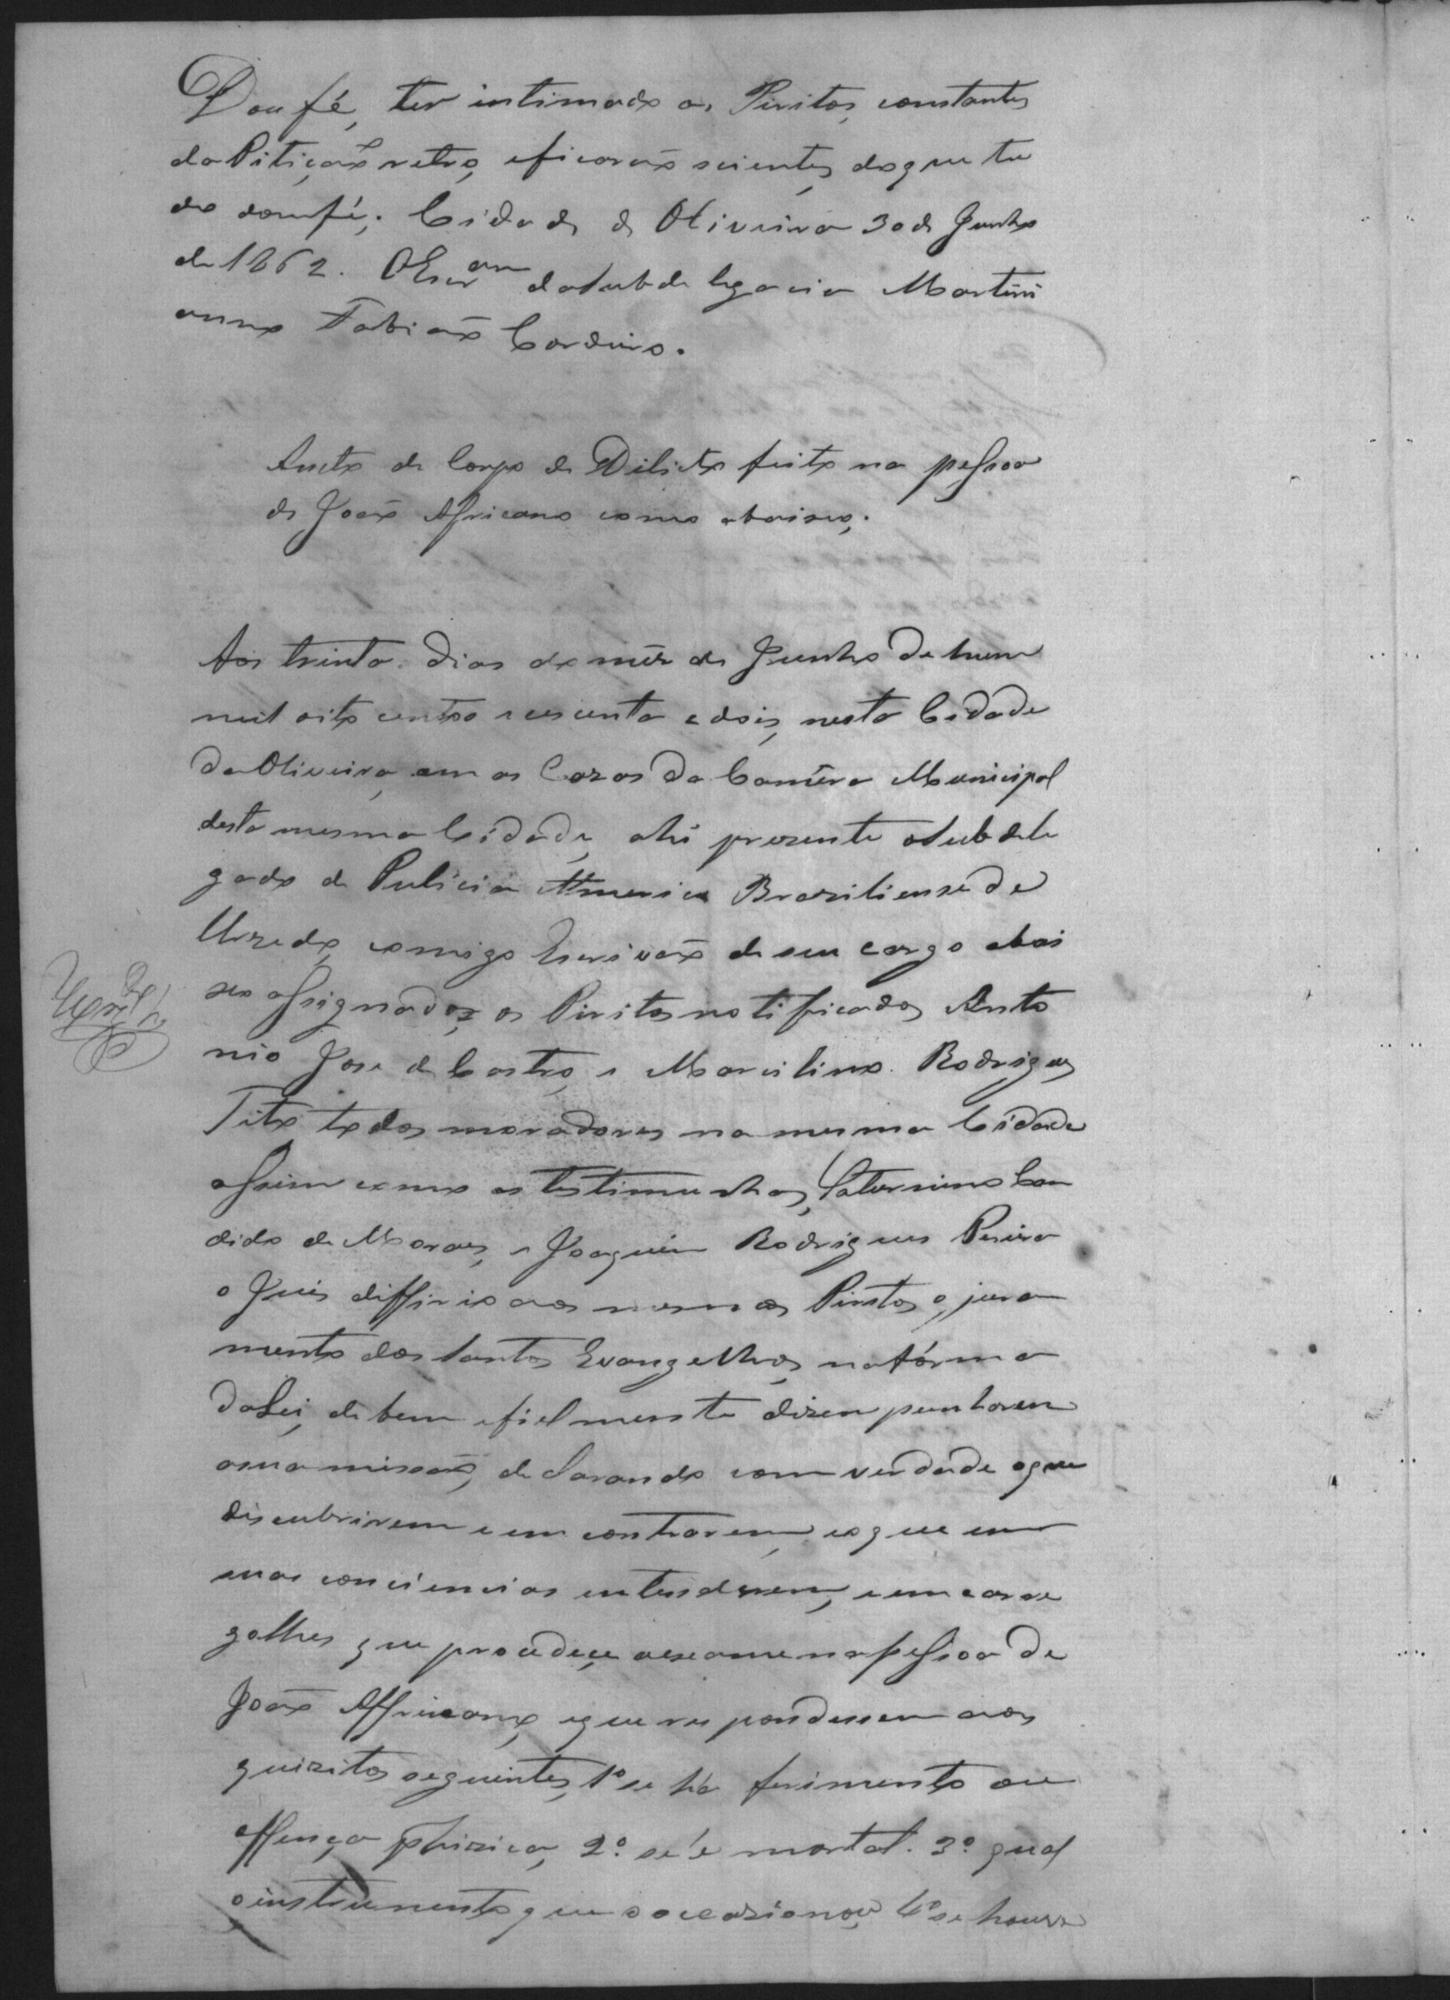 Dou fé, ter intimado os Piritos, constantes
da Pitição retro, eficarão scientes, do que tu
do dou fé; Cidade de Oliveira 30 de Junho
de 1862. OEscr.am dasubdelegacia Martini
anno Fabião Cordeiro.
Aucto de Corpo de Dilicto feito na pessoa
de João Africano como abaixo;
Aos trinta dias do mêz de Junho de hum
mil oito centos secenta e dois, nesta Cidade
de Oliveira, em as Cazas da Camêra Municipal
desta mesma Cidade, ahi prezente oSubdele
gado de Pulicia Americo Braziliense de
Urzedo, comigo Escrivão de seu cargo abai
xo assignado, os Piritos notificados Anto
nio José de Castro, e Marcilino Rodrigues
Tito todos moradores na mesma Cidade
assim como as testimunhas, Saturnino Can
dido de Moraes, e Joaquim Rodrigues Pereira
o Juis differio aos mesmos Piritos o jura
mento dos Santos Evangelhos, na fórma
da Lei, de bem efielmente dizempenharem
asua missão, declarando com verdade oque
discubrirem e em contrarem, eoque em
suas conciencias entenderem, e em carre
golhes que procedeçe aexame napessoa de
João Affricano, eque respondessem aos
quizitos seguintes, 1º se há ferimento ou
offença phizica, 2º se é mortal. 3º qual
oinstrumento que o occazionou 4º se houve